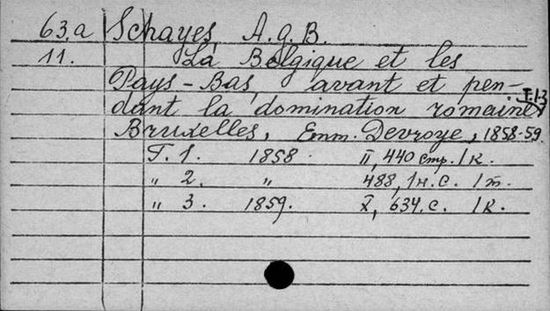 63.a Schayes A.G.B.
11. La Belgique et les
Pays-Bas, avant et pen-
dant la domination romaine, T. 1-3
Bruxelles, Emm. Devroye, 1858-59.
T. 1. 1858. II, 440 стр. 1 к.
" 2. " 488, 1 н. с. 1 т.
" 3. 1859. X, 634. с. 1 к.